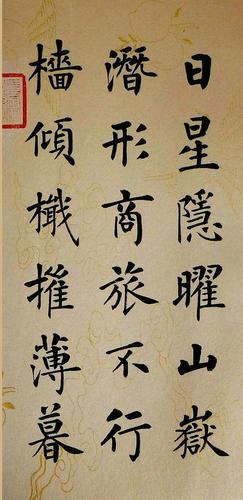 日星隱曜山嶽
潛形商旅不行
檣傾檝摧薄暮